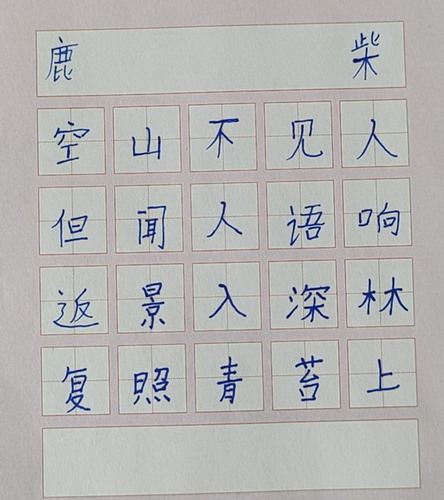 鹿 柴
空山不见人
但闻人语响
返景入深林
复照青苔上